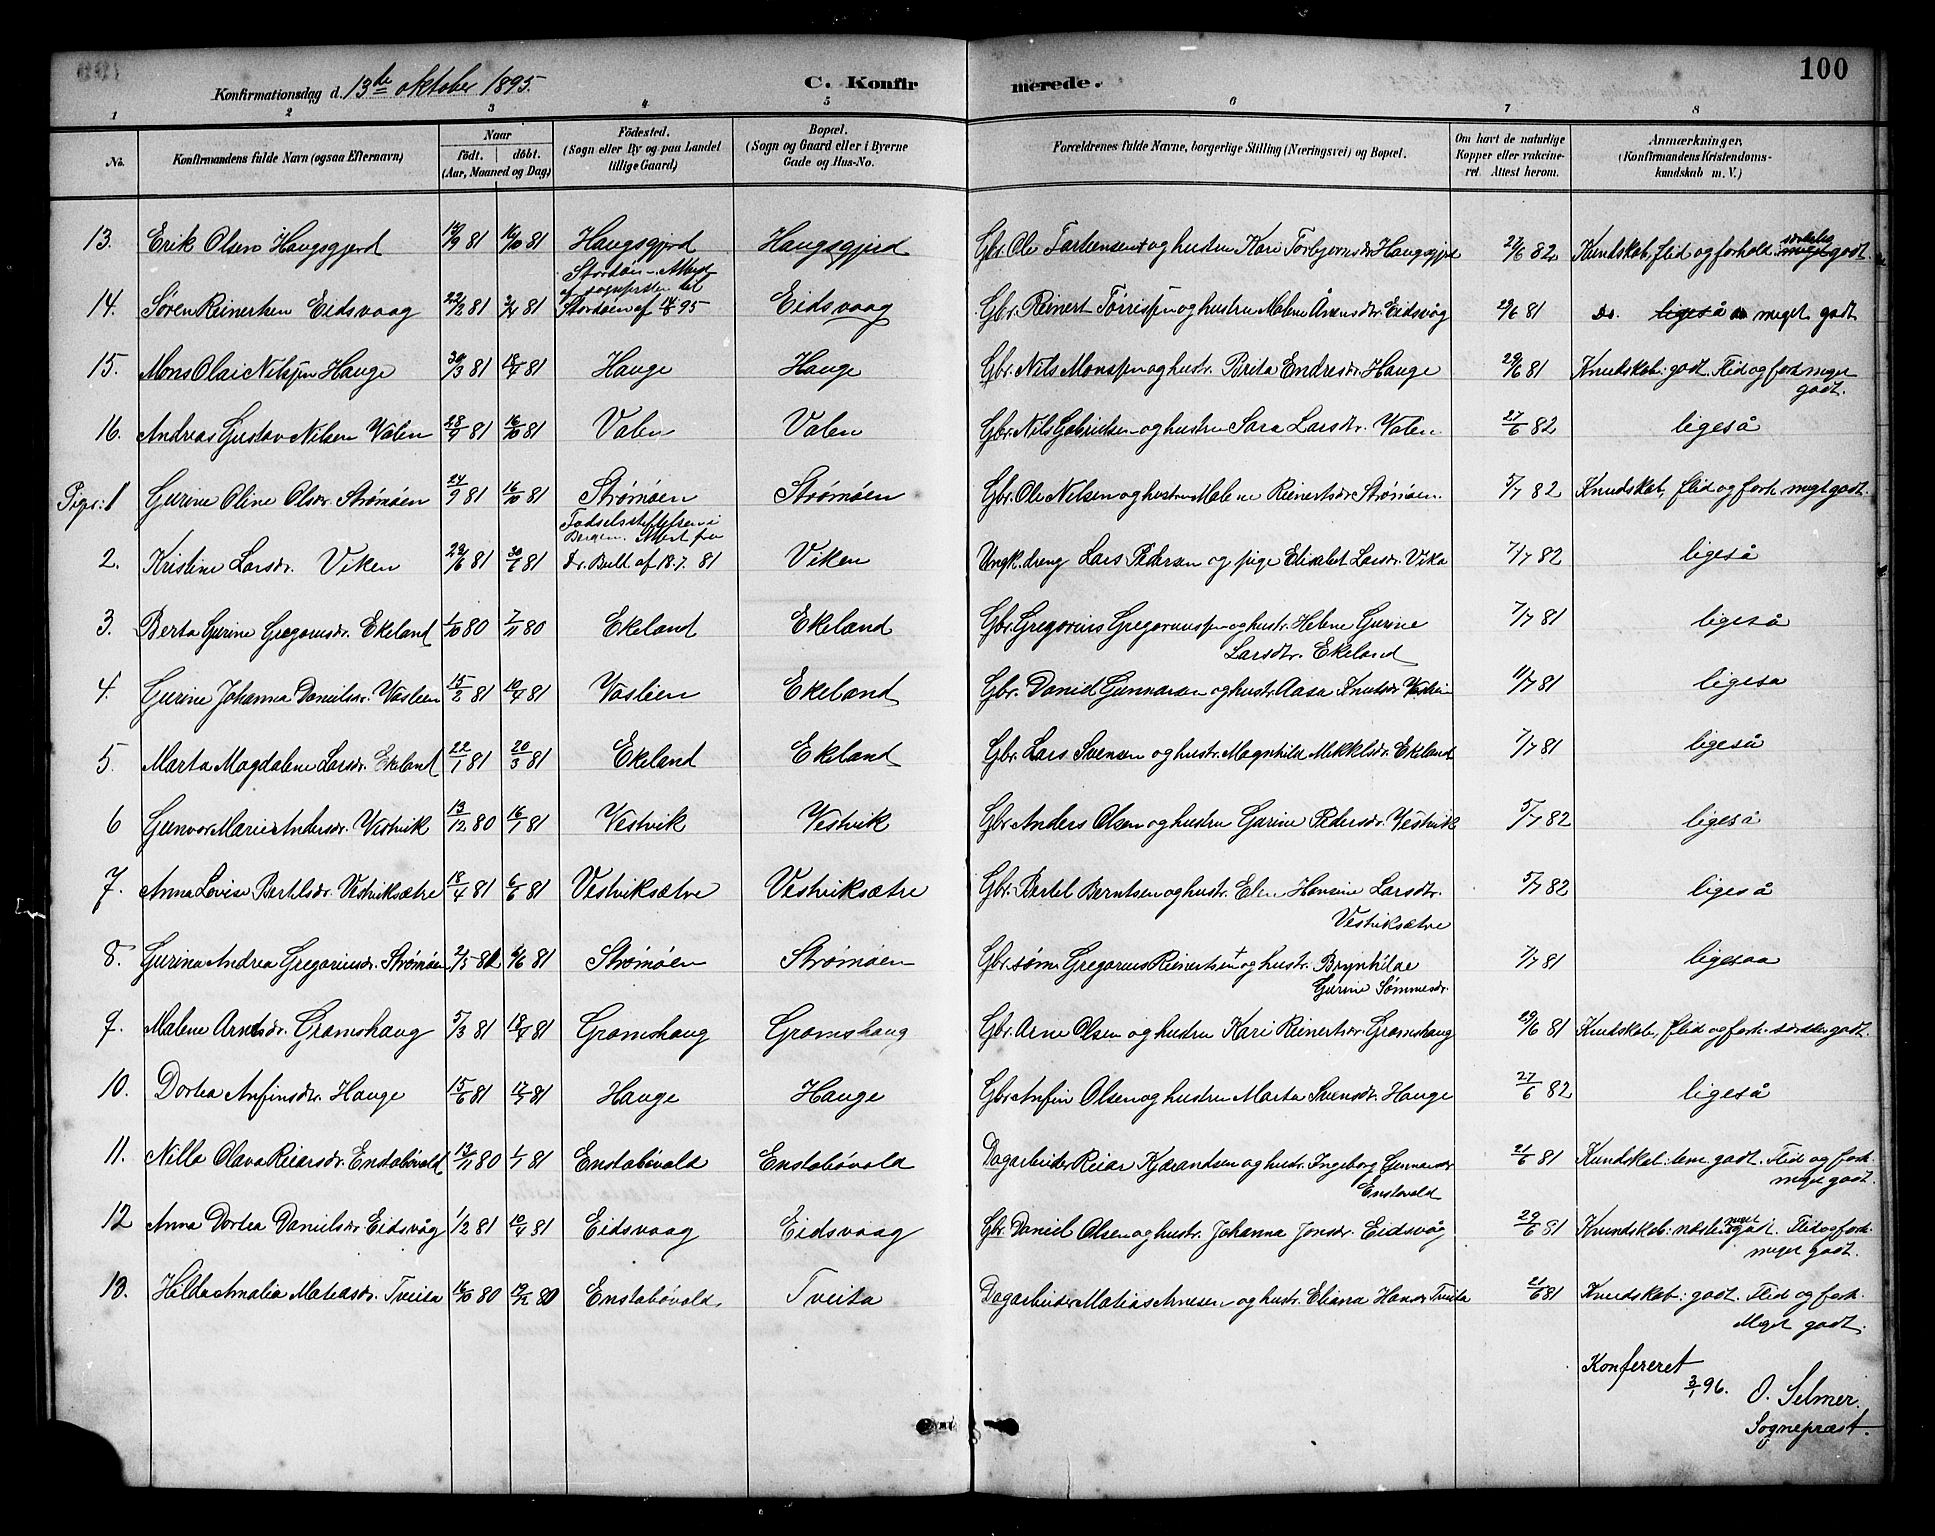 100
Konfirmationsdag d. 13de oktober 1895.
C. Konfirmerede.
1 2 3 4 5 6 7 8
No. Konfirmandens fulde Navn (ogsaa Efternavn) Naar födt. döbt. (Aar, Maaned og Dag) Födested. (Sogn eller By og paa Landet tillige Gaard) Bopæl. (Sogn og Gaard eller i Byerne Gade og Hus-No. Forældrenes fulde Navne, borgerlige Stilling (Næringsvei) og Bopæl. Om havt de naturlige Kopper eller vakcineret. Attest herom. Anmærkninger, (Konfirmandens Kristendomskundskab m. V.)
13. Erik Olsen Haugsgjerd 81 16/10 81 Haugsgjerd Haugsgjerd Gbr. Ole og hustru Kari Torbjørnsdr Haugsgjerd 27/6 82 Kundskab, flid og forhold særdeles godt.
14. Søren Reinertsen Eidsvaag 22/2 81 81 Stordøen - Attest af sognepresten til Stordøen af 95 Eidsvaag Gbr. Reinert Tørrissen og hustru Malene Eidsvåg 29/6 81 Do. ligeså meget godt
15. Mons Olai Nilssen Hauge 30/3 81 81 Hauge Hauge Gbr. Nils Monssen og hustr. Brita Endresdr. Hauge 29/6 81 Knudskab: godt. Flid og forh meget godt.
16. Andreas Gustav Nilsen Valen 28/9 81 16/10 81 Valen Valen Gbr. Nils Gabrielsen og hustru Sara Larsdtr. Valen 27/6 82 ligeså
Piger: 1 Gurine Oline Olsdr. Strømøen 24/9 81 16/10 81 Strømøen Strømøen Gbr. Ole Nilsen og hustru Malene Reinertsdr Strømøen. 5/7 82 Knudskab, flid og forh. megt godt.
2. Kristine Larsdr. Viken 81 81 Fødselsstiftelsen i Bergen. Attest fra Dr. Bull af 18.7.81 Viken Ungk. dreng Lars Pedersen og pige Elisabet Larsdr. Vika 7/7 82 ligeså
3. Berta Gurine Gregoriusdr. Ekeland 1/10 80 7/11 80 Ekeland Ekeland Gbr. Gregorius Gregoriussen og hustr. Helene Gurine Larsdtr. Ekeland 7/7 81 ligeså
4. Gurine Johanna Danielsdr. Vaslien 15/2 81 10/4 81 Vaslien Ekeland Gbr. Daniel Gunnarsen og hustr. Aasa Knutsdr Vaslien 81 ligesa
5. Marta Magdalene Larsdr. Ekeland 22/1 81 20/3 81 Ekeland Ekeland Gbr. Lars Svensen og hustr. Magnhilda Mikkelsdr. Ekeland 7/7 81 ligeså
6 Gunvor Marie Andersdr. Vestvik 13/12 80 16/1 81 Vestvik Vestvik Gbr. Anders Olsen og hustru Gurine Pedersdr. Vestvik 5/7 82 ligeså
7. Anna Lovise Bertilsdr. Vestviksætre 18/4 81 6/6 81 Vestviksætre Vestviksætre Gbr. Bertel Berntsen og hustr. Elen Hansine Larsdtr. Vestviksætre 5/7 82 ligeså
8. Gurina Andrea Gregoriusdr. Strømøen 2/5 81 6/6 81 Strømøen Strømøen Gbr. søn Gregorius Reinertsen + og hustr. Brynhilde Gurine Sømmesdr. 7/7 81 ligesaa
9. Malene Arnesdr. Gramshaug 5/3 81 18/4 81 Gramshaug Gramshaug Gbr. Arne Olsen og hustru Kari Reinertsdr. Gramshaug 29/6 81 Knudskab, flid og forh. særdeles godt.
10. Dortea Anfinsdtr. Hauge 15/6 81 81 Hauge Hauge Gbr. Anfin Olsen og hustru Marta Svensdr. Hauge 27/6 82 ligeså
11. Nilla Olava Reiarsdr. Enstabøvold 13/11 80 1/1 81 Enstabøvold Enstabøvold Dagarbeider Reiar Kjærandsen og hustr. Ingeborg Gunnarsdr Enstavold 21/6 81 Kundskab: godt. Flid og forh. meget godt.
12 Anna Dortea Danielsdr. Eidsvåg 1/2 81 10/4 81 Eidsvaag Eidsvaag Gbr. Daniel Olsen og hustr. Johanna Jonsdr. Eidsvåg 29/6 81 Knundskab: næsten meget godt. Flid og forh. meget godt.
13. Hilda Amalia Matiasdr. Tveita 16/10 80 19/12 80 Enstabøvold, Tveita Dagarbeider Matias Arnesen og hustr. Eliana Hansdr Tveita 21/6 81 Knudskab: godt. Flid og forh. Meget godt.
Konfereret
3/1 96. O. Selmer.
Sogneprest.